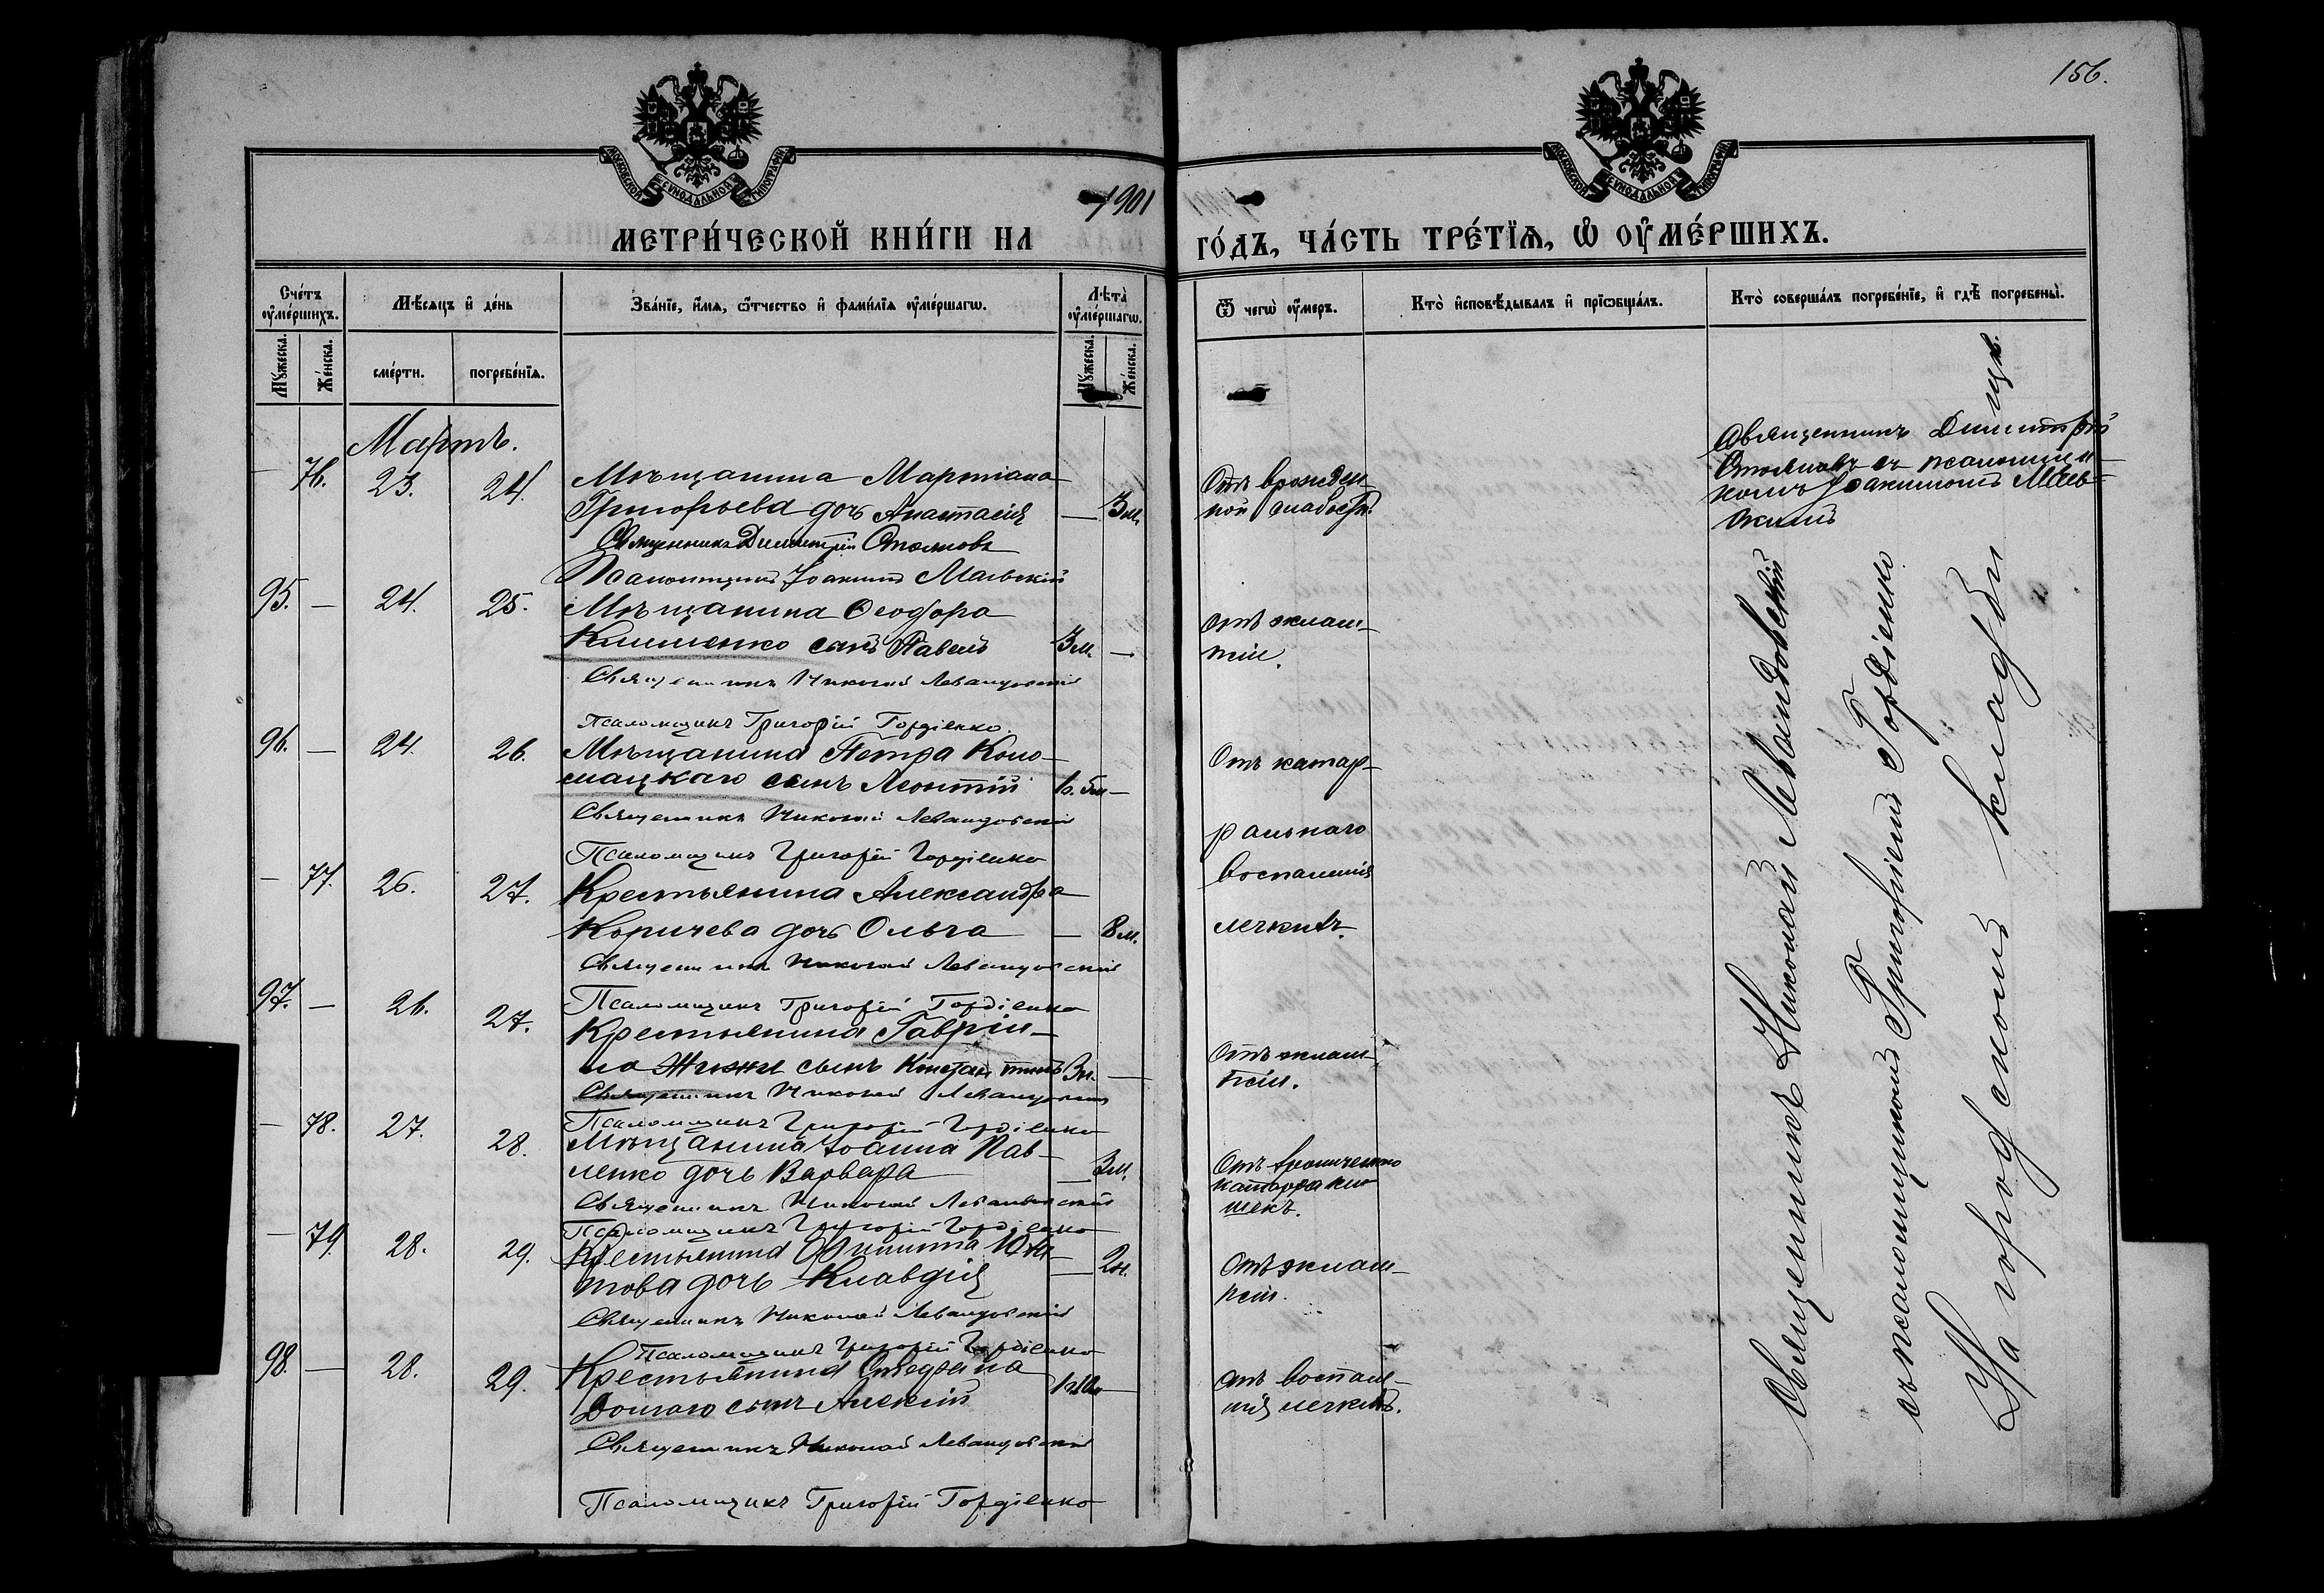 156.
МОСКОВСКОЙ СѴНОДАЛЬНОЙ ТИПОГРАФІИ
МОСКОВСКОЙ СѴНОДАЛЬНОЙ ТИПОГРАФІИ
1901
МЕТРИ́ЧЕСКОЙ КНИ́ГИ НА
ГО́ДЪ, ЧА́СТЬ ТРЕ́ТЇѦ, Ѡ҆ ОУ҆МЕ́РШИХЪ.
Сче́тъ оу҆ме́ршихъ.
Мѣ́сяцъ и҆ де́нь
Зва́нїе, и҆́мѧ, ѻ҆́тчество и҆ фами́лїѧ оу҆ме́ршагѡ.
Лѣта̀ оу҆ме́ршагѡ.
Ѿ чегѡ̀ оу҆́меръ.
Кто̀ и҆сповѣ́дывалъ и҆ прїѡбща́лъ.
Кто̀ соверша́лъ погребе́нїе, и҆ гдѣ̀ погребены̀.
Мꙋ́жеска.
Же́нска.
сме́рти.
погребе́нїѧ.
Мꙋ́жеска.
Же́нска.
Мартъ.
— 76. 23. 24. Мѣщанина Мартіана
Григорьева дочь Анастасія — 3м.
Священникъ Димитрій Стояновъ
Псаломщикъ Іоакимъ Маевскій
Отъ врожден-
ной слабости.
Священникъ Димитрій
Стояновъ съ псаломщи-
комъ Іоакимомъ Маев-
скимъ
95. — 24. 25. Мѣщанина Ѳеодора
Клименко сынъ Павелъ 3м. —
Священникъ Николай Левандовскій
Псаломщикъ Григорій Гордіенко.
Отъ эклам-
псіи.
96. — 24. 26. Мѣщанина Петра Коло-
мацкаго сынъ Леонтій
Священникъ Николай Левандовскій
Псаломщикъ Григорій Гордіенко
Отъ катар-
ральнаго
воспаленія
легкихъ.
— 77. 26. 27. Крестьянина Александра
Коричева дочь Ольга — 8м.
Священникъ Николай Левандовскій
Псаломщикъ Григорій Гордіенко
97. — 26. 27. Крестьянина Гавріи-
ла Жижи сынъ Константинъ —
Священникъ Николай Левандовскій
Псаломщикъ Григорій Гордіенко
Отъ эклам-
псіи.
— 78. 27. 28. Мѣщанина Іоанна Пав-
ленко дочь Варвара — 3м.
Священникъ Николай Левандовскій
Псаломщикъ Григорій Гордіенко
Отъ хроническаго
катарра ки-
шекъ.
— 79. 28. 29. Крестьянина
това дочь Клавдія —
Священникъ Николай Левандовскій
Псаломщикъ Григорій Гордіенко
Отъ эклам-
псіи.
98. — 28. 29. Крестьянина Стефана
Долгаго сынъ Алексій
Священникъ Николай Левандовскій
Псаломщикъ Григорій Гордіенко
отъ воспале-
нія легкихъ.
Священникъ Николай Левандовскій
съ псаломщикомъ Григоріемъ Гордіенко
На городскомъ кладбищѣ.